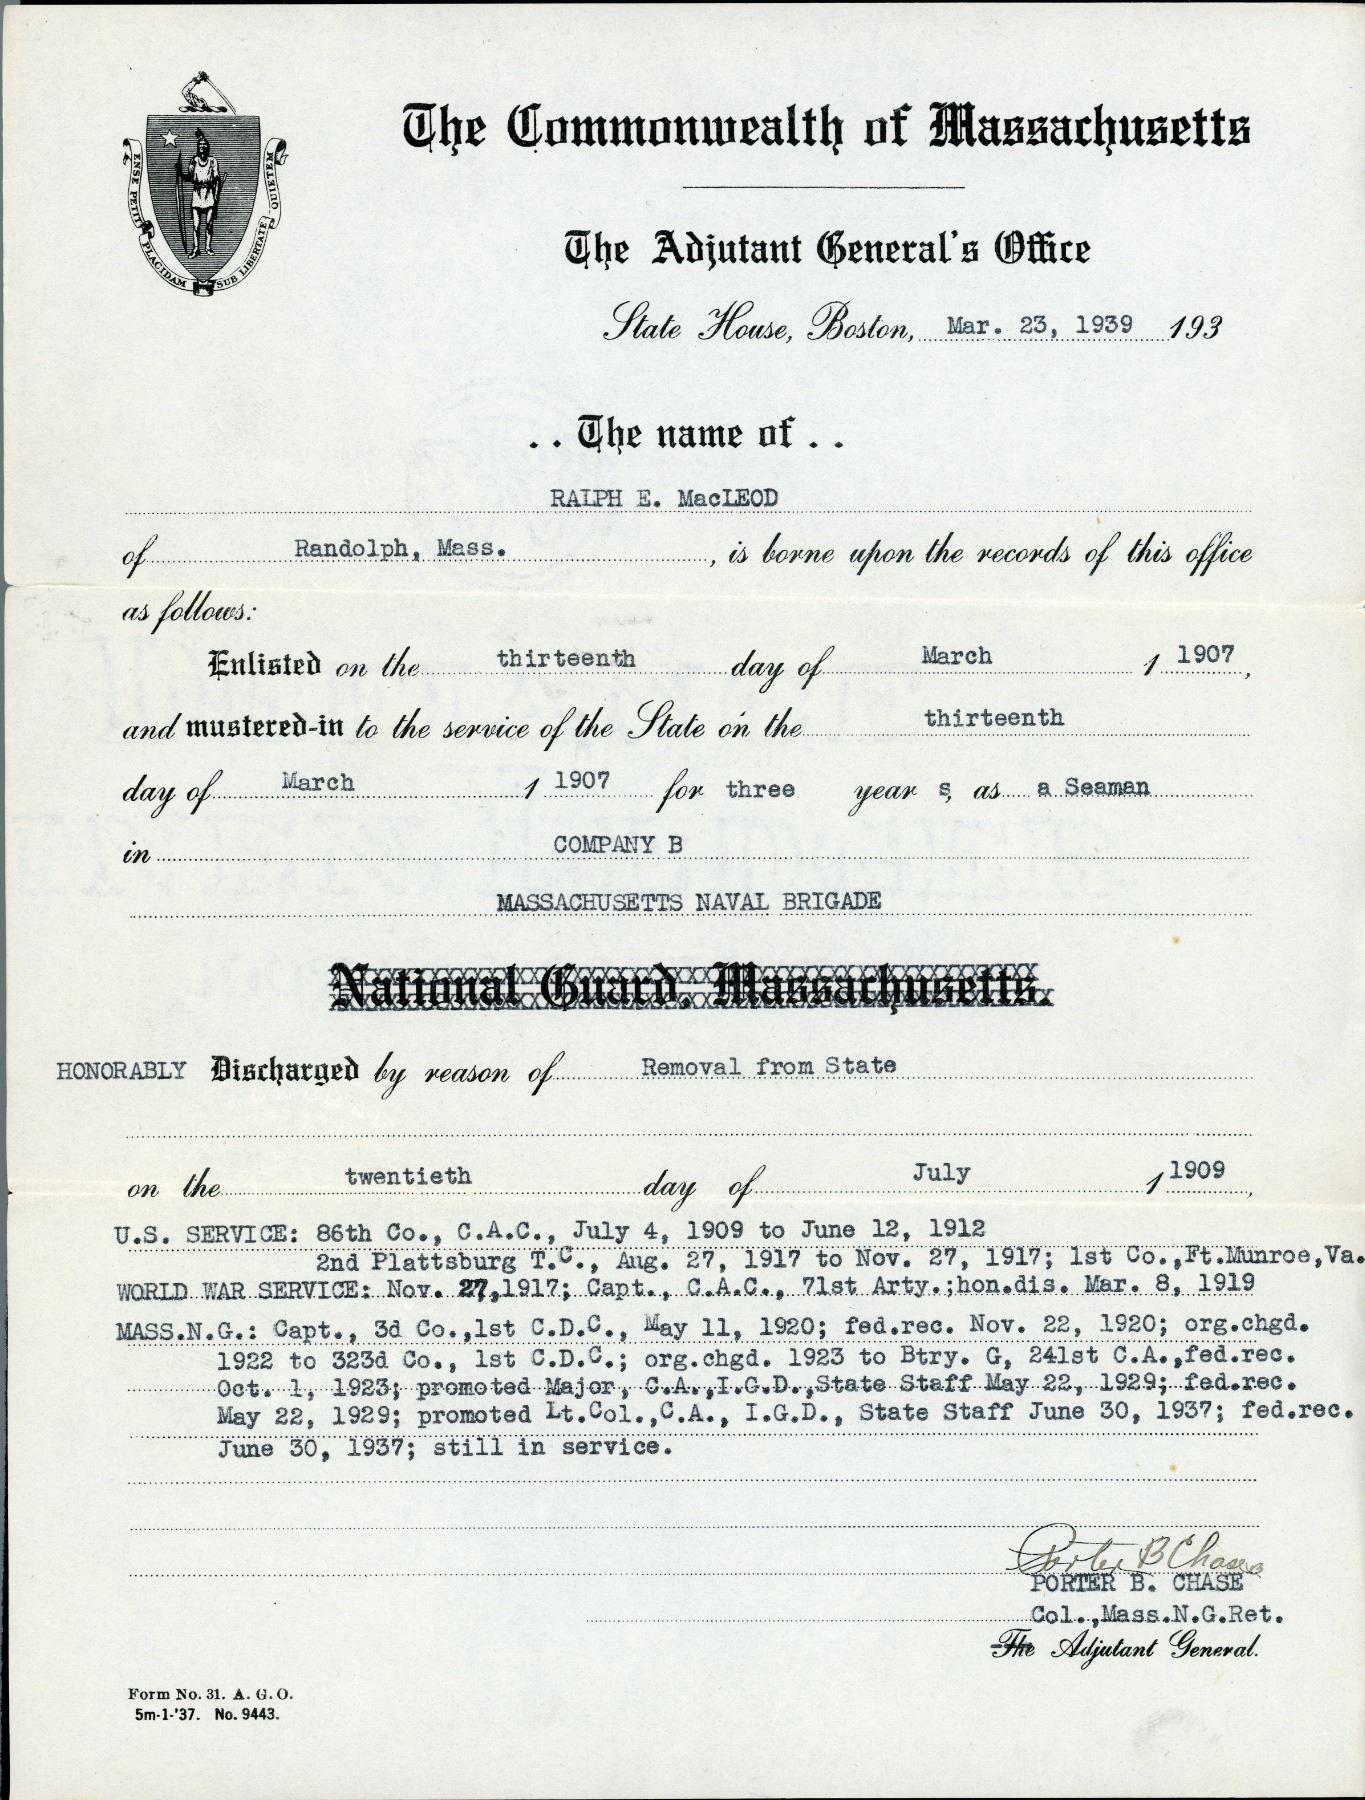 ENSE PETIT PLACIDAM SUB LIBERTATE QUIETEM
The Commonwealth of Massachusetts
The Adjutant General's Office
State House, Boston, Mar. 23, 1939 193
. . The name of . .
RALPH E. MacLEOD
of Randolph, Mass. , is borne upon the records of this office
as follows:
Enlisted on the thirteenth day of March 1 1907,
and mustered-in to the service of the State on the thirteenth
day of March 1 1907 for three year s, as a Seaman
in COMPANY B
MASSACHUSETTS NAVAL BRIGADE
National Guard, Massachusetts.
HONORABLY Discharged by reason of Removal from State
on the twentieth day of July 1 1909,
U.S. SERVICE: 86th Co., C.A.C., July 4, 1909 to June 12, 1912
2nd Plattsburg T.C., Aug. 27, 1917 to Nov. 27, 1917; 1st Co.,Ft.Munroe,Va.
WORLD WAR SERVICE: Nov. 27,1917; Capt., C.A.C., 71st Arty.;hon.dis. Mar. 8, 1919
MASS.N.G.: Capt., 3d Co.,1st C.D.C., May 11, 1920; fed.rec. Nov. 22, 1920; org.chgd.
1922 to 323d Co., 1st C.D.C.; org.chgd. 1923 to Btry. G, 241st C.A.,fed.rec.
Oct. 1, 1923; promoted Major, C.A.,I.G.D.,State Staff May 22, 1929; fed.rec.
May 22, 1929; promoted Lt.Col.,C.A., I.G.D., State Staff June 30, 1937; fed.rec.
June 30, 1937; still in service.
Porter B Chase
PORTER B. CHASE
Col.,Mass.N.G.Ret.
The Adjutant General.
Form No. 31. A. G. O.
5m-1-'37. No. 9443.